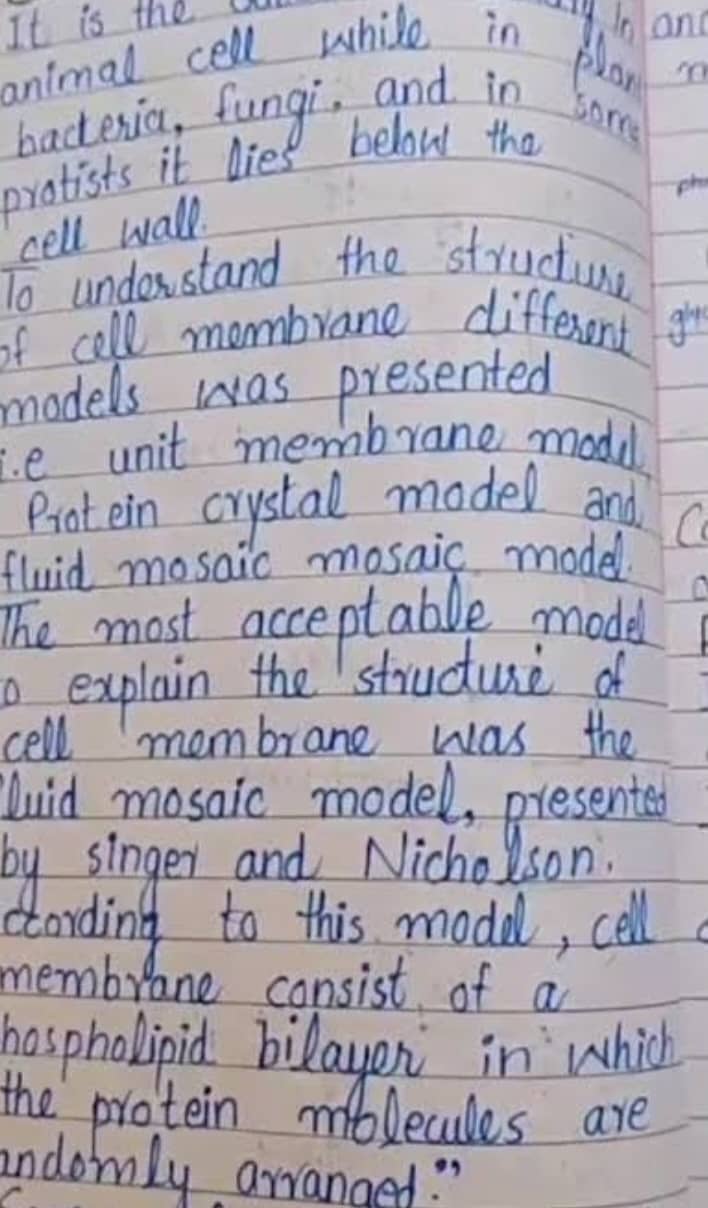 It is the
animal cell while in plan
bacteria, fungi, and in some
protists it lies below the
cell wall.
To understand the structure
of cell membrane different
models was presented
i.e unit membrane model,
Protein crystal model and
fluid mosaic mosaic model.
The most acceptable model
o explain the structure of
cell membrane was the
luid mosaic model, presented
by singer and Nicholson.
ccording to this model, cell
membrane consist of a
hospholipid bilayer in which
the protein molecules are
andomly arranged."